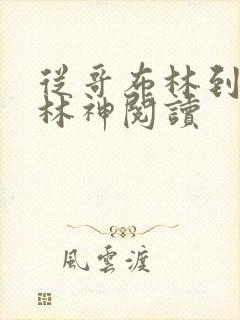 從哥布林到
林神閱讀
風雲渡